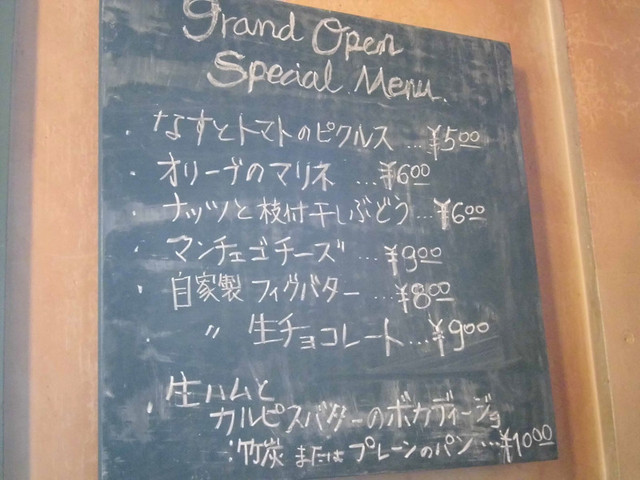 Grand Open
Special Menu.
・なすとトマトのピクルス…¥500
・オリーブのマリネ…¥600
・ナッツと枝付干しぶどう…¥600
・マンチェゴチーズ…¥900
・自家製フィグバター…¥800
・〃生チョコレート…¥900
・生ハムと
カルピスバターのボカディージョ
:竹炭またはプレーンのパン…¥1000